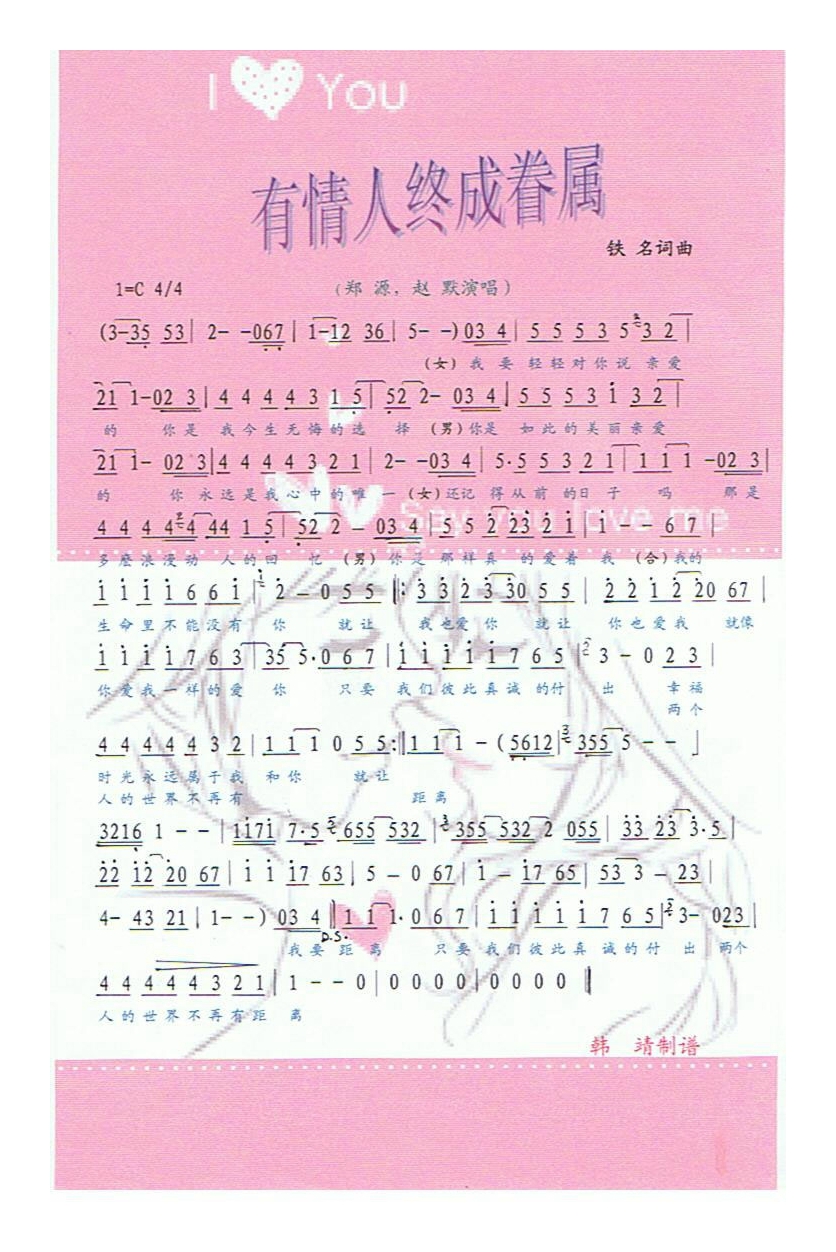 I You
有情人终成眷属
铁 名词曲
1=C 4/4 (郑 源, 赵 默演唱)
(3-35 53| 2- -067| 1-12 36| 5- -)03 4| 5 5 5 3 5 3 2|
(女) 我 要 轻轻对你说 亲爱
21 1-02 3|4 4 4 4 3 1 5|52 2- 03 4|5 5 5 3 1 3 2|
的 你是 我今生无悔的选 择 (男)你是 如此的美丽亲爱
21 1- 02 3|4 4 4 4 3 2 1| 2- -03 4| 5·5 5 3 2 1|1 1 1 -02 3|
的 你 永远是我心中的唯 一 (女)还记 得从前的日 子 吗 那是
Say you love me
4 4 4 4 4 44 1 5|52 2 - 03 4|5 5 2 23 2 1|1 - - 6 7|
多麽浪漫动 人的回 忆 (男)你是那样真 的爱着 我 (合)我的
1 1 1 1 6 6 1| 2 - 0 5 5 |: 3 3 2 3 30 5 5 | 2 2 1 2 20 67|
生命里不能没有 你 就让 我也爱你 就让 你也爱我 就像
1 1 1 1 7 6 3|35 5·0 6 7|1 1 1 1 1 7 6 5| 3 - 0 2 3|
你爱我一样的爱 你 只要 我们彼此真诚 的付 出 幸福
两个
4 4 4 4 4 3 2|1 1 1 0 5 5:|1 1 1 - (5612| 355 5 - -
时光永远属于我 和你 就让
人的世界不再有 距离
3216 1 - - |1171 7·5 655 532| 355 532 2 055| 33 23 3·5|
22 12 20 67|1 1 17 63|5 - 0 67|1 - 17 65|53 3 - 23|
4- 43 21|1- -) 03 4|1 1 1· 0 6 7|1 1 1 1 1 7 6 5| 3- 023|
D.S.
我要 距离 只要 我们彼此真 诚的付 出 两个
4 4 4 4 4 3 2 1|1 - - 0|0 0 0 0|0 0 0 0
人的世界不再有距 离
韩 靖制谱